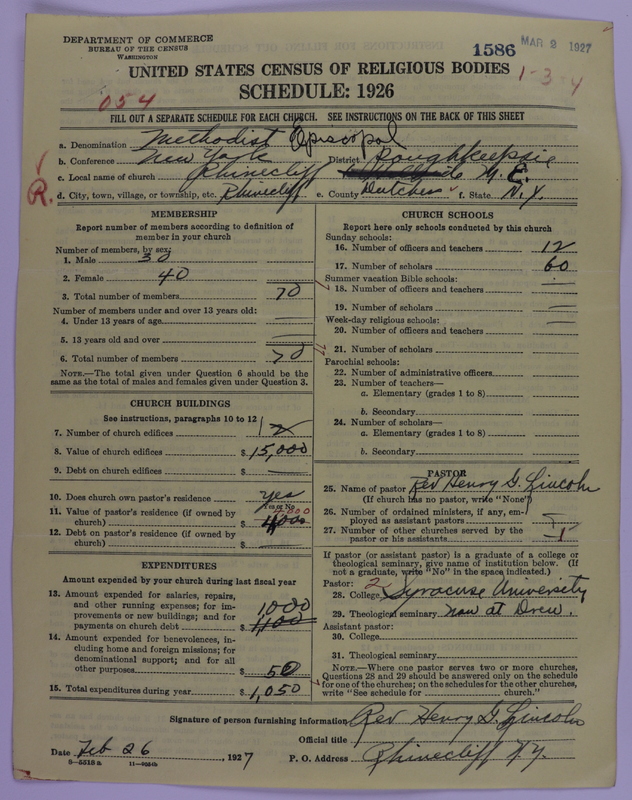 DEPARTMENT OF COMMERCE
BUREAU OF THE CENSUS
WASHINGTON
1586 MAR 2 1927
UNITED STATES CENSUS OF RELIGIOUS BODIES
1-3-4
SCHEDULE: 1926
054
FILL OUT A SEPARATE SCHEDULE FOR EACH CHURCH. SEE INSTRUCTIONS ON THE BACK OF THIS SHEET
a. Denomination Methodist Episcopal
b. Conference New York District Poughkeepsie
c. Local name of church Rhinecliff M. E.
R. d. City, town, village, or township, etc. Rhinecliff e. County Dutchess f. State N.Y.
MEMBERSHIP
Report number of members according to definition of
member in your church
Number of members, by sex:
1. Male 30
2. Female 40
3. Total number of members 70
Number of members under and over 13 years old:
4. Under 13 years of age
5. 13 years old and over
6. Total number of members 70
NOTE.—The total given under Question 6 should be
same as the total of males and females given under Question 3.
CHURCH BUILDINGS
See instructions, paragraphs 10 to 12
7. Number of church edifices
8. Value of church edifices $ 15,000
9. Debt on church edifices $
10. Does church own pastor's residence yes
Yes or No
11. Value of pastor's residence (if owned by
church) $
12. Debt on pastor's residence (if owned by
church) $
EXPENDITURES
Amount expended by your church during last fiscal year
13. Amount expended for salaries, repairs,
and other running expenses; for im-
provements or new buildings; and for
payments on church debt $ 1,000
14. Amount expended for benevolences, in-
cluding home and foreign missions; for
denominational support; and for all
other purposes $ 50
15. Total expenditures during year $ 1,050
CHURCH SCHOOLS
Report here only schools conducted by this church
Sunday schools:
16. Number of officers and teachers 12
17. Number of scholars 60
Summer vacation Bible schools:
18. Number of officers and teachers
19. Number of scholars
Week-day religious schools:
20. Number of officers and teachers
21. Number of scholars
Parochial schools:
22. Number of administrative officers
23. Number of teachers—
a. Elementary (grades 1 to 8)
b. Secondary
24. Number of scholars—
a. Elementary (grades 1 to 8)
b. Secondary
PASTOR
25. Name of pastor Rev Henry G. Lincoln
(If church has no pastor, write "None")
26. Number of ordained ministers, if any, em-
ployed as assistant pastors
27. Number of other churches served by the
pastor or his assistants 1
If pastor (or assistant pastor) is a graduate of a college or
theological seminary, give name of institution below. (If
not a graduate, write "No" in the space indicated.)
Pastor: 2
28. College Syracuse University
29. Theological seminary now at Drew.
Assistant pastor:
30. College
31. Theological seminary
NOTE.—Where one pastor serves two or more churches,
Questions 28 and 29 should be answered only on the schedule
for one of the churches; on the schedules for the other churches,
write "See schedule for church."
Signature of person furnishing information Rev Henry G. Lincoln
Official title
Date Feb 26, 1927 P. O. Address Rhinecliff N.Y.
8—5518 a 11—9624b